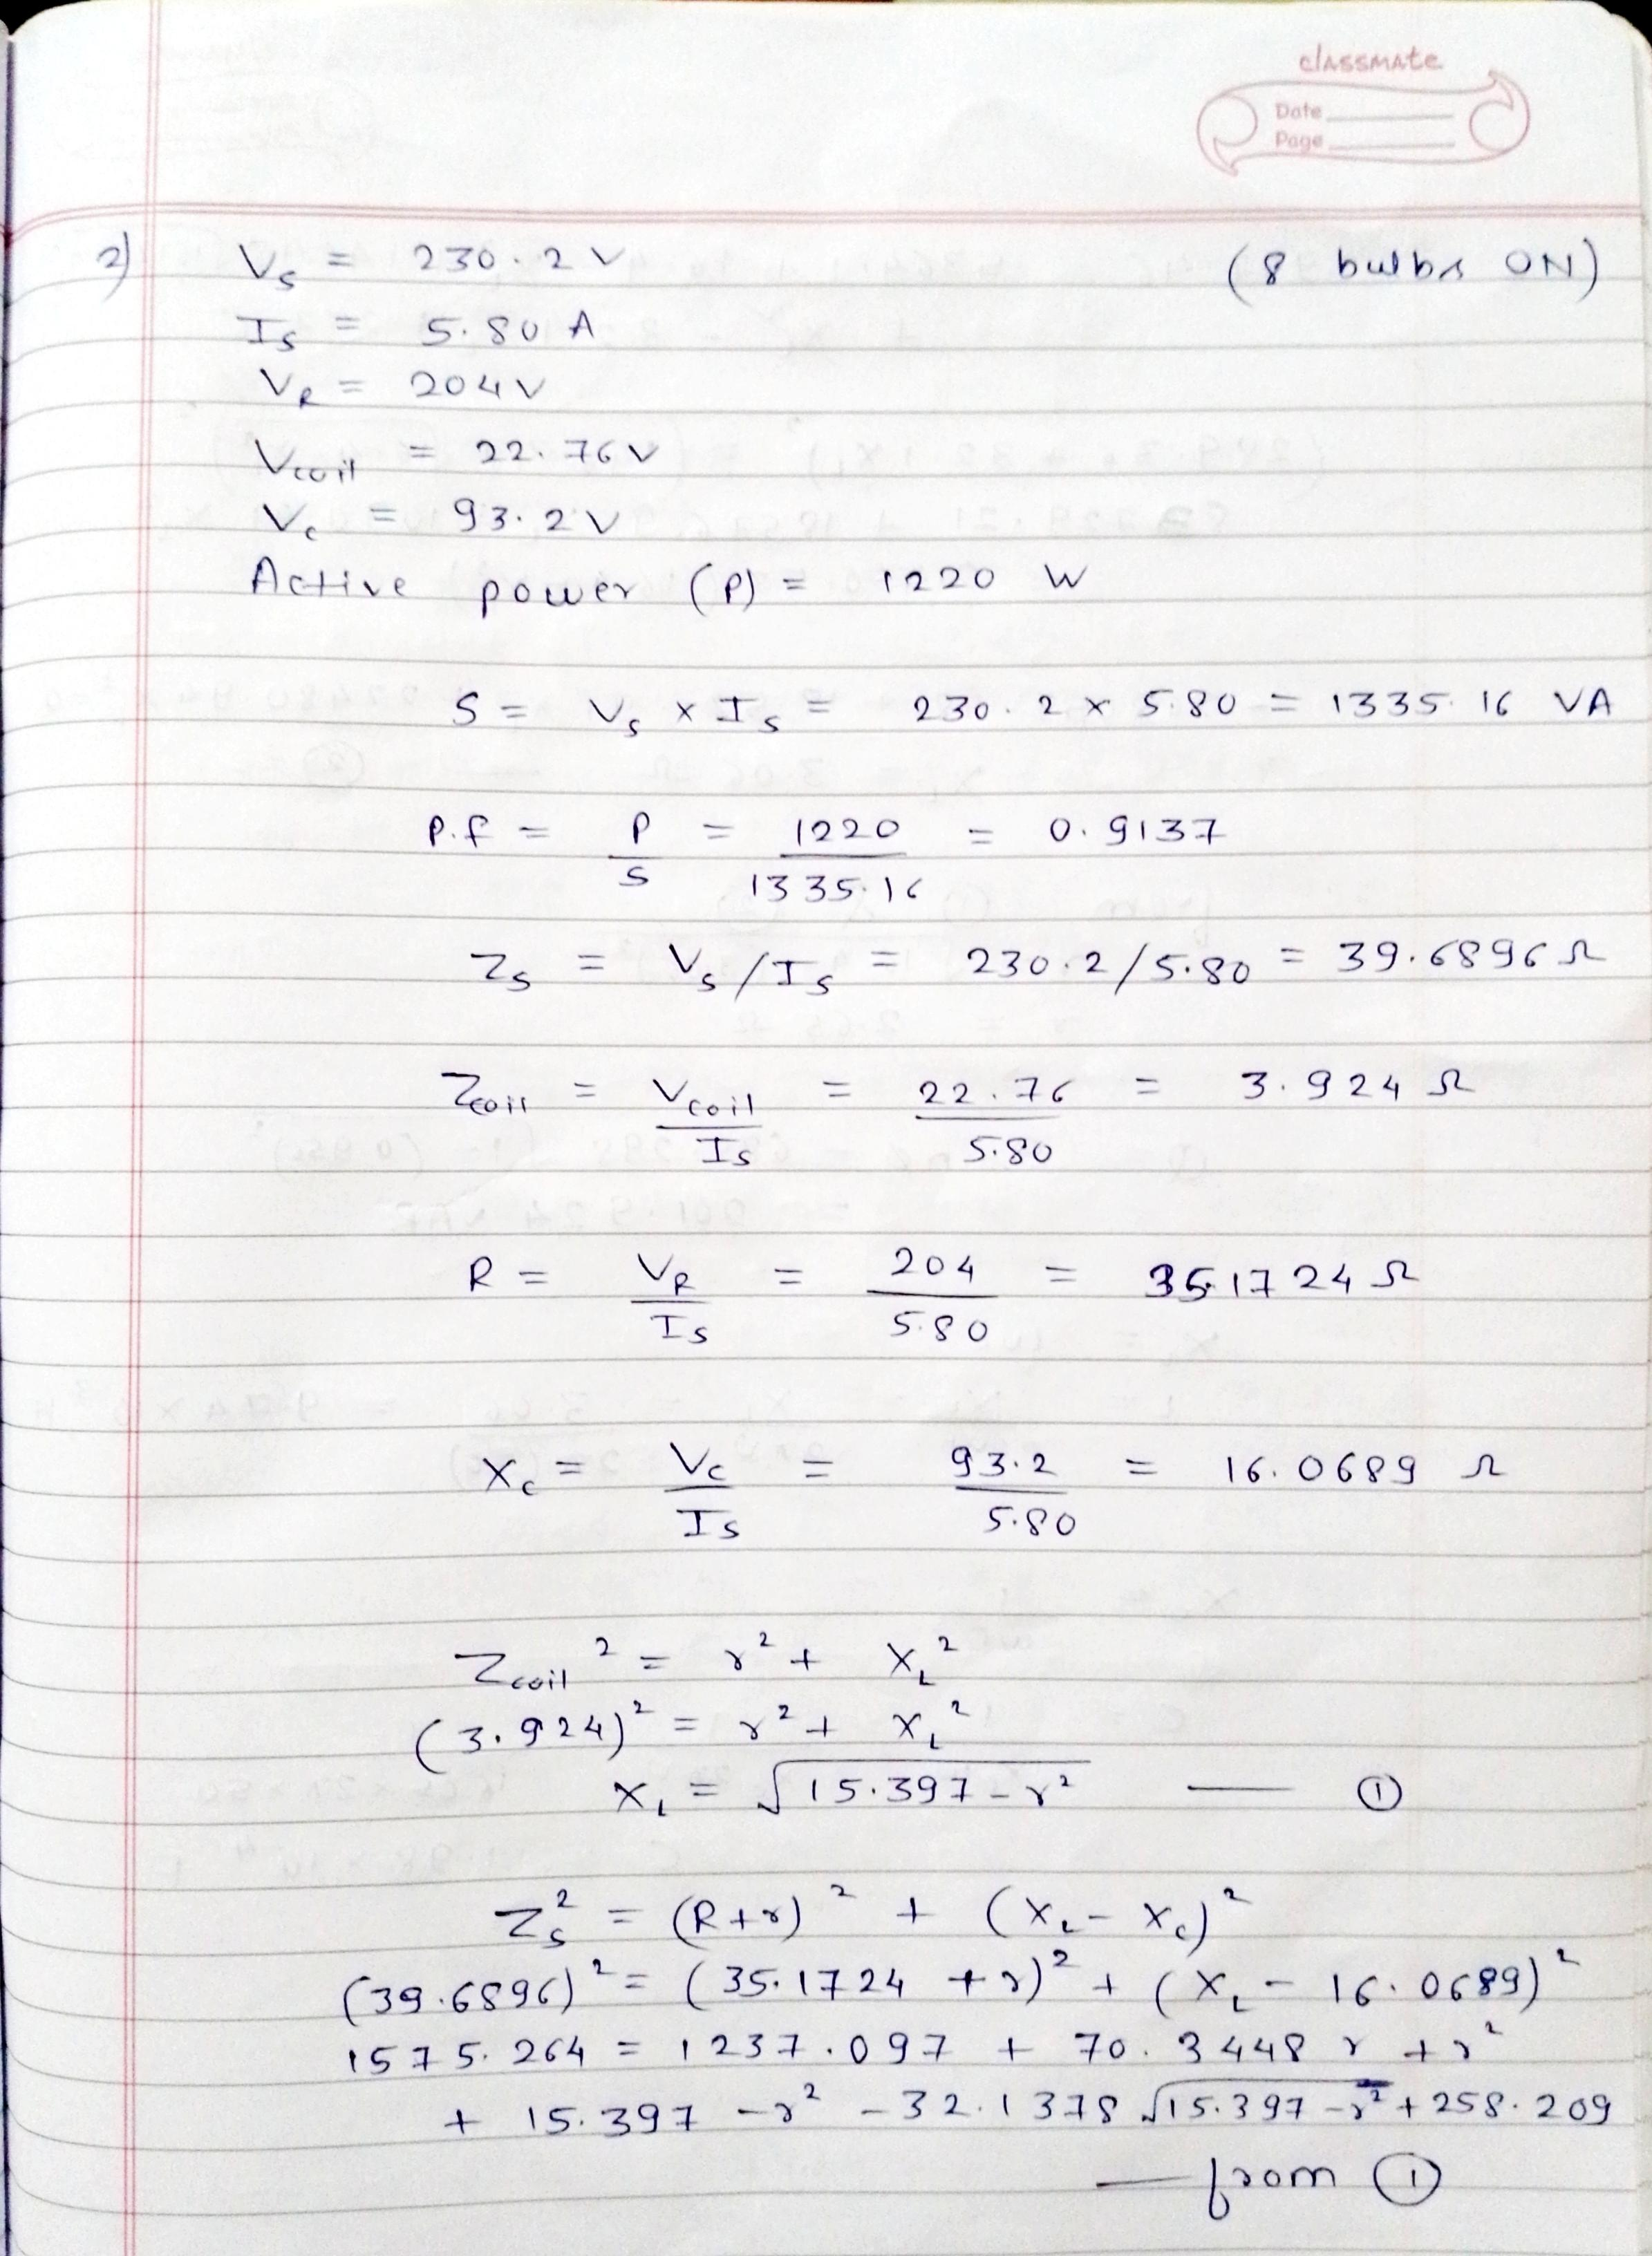 classmate
Date
Page
2) Vs = 230.2 V (8 bulbs ON)
Is = 5.80 A
VR = 204 V
Vcoil = 22.76 V
Vc = 93.2 V
Active power (P) = 1220 W
S = Vs × Is = 230.2 × 5.80 = 1335.16 VA
P.f = P/S = 1220/1335.16 = 0.9137
Zs = Vs/Is = 230.2/5.80 = 39.6896 Ω
Zcoil = Vcoil/Is = 22.76/5.80 = 3.924 Ω
R = VR/Is = 204/5.80 = 35.1724 Ω
Xc = Vc/Is = 93.2/5.80 = 16.0689 Ω
Zcoil² = r² + XL²
(3.924)² = r² + XL²
XL = √(15.397 - r²) — ①
Zs² = (R+r)² + (XL - Xc)²
(39.6896)² = (35.1724 + r)² + (XL - 16.0689)²
1575.264 = 1237.097 + 70.3448 r + r²
+ 15.397 - r² - 32.1378 √(15.397 - r²) + 258.209
— from ①